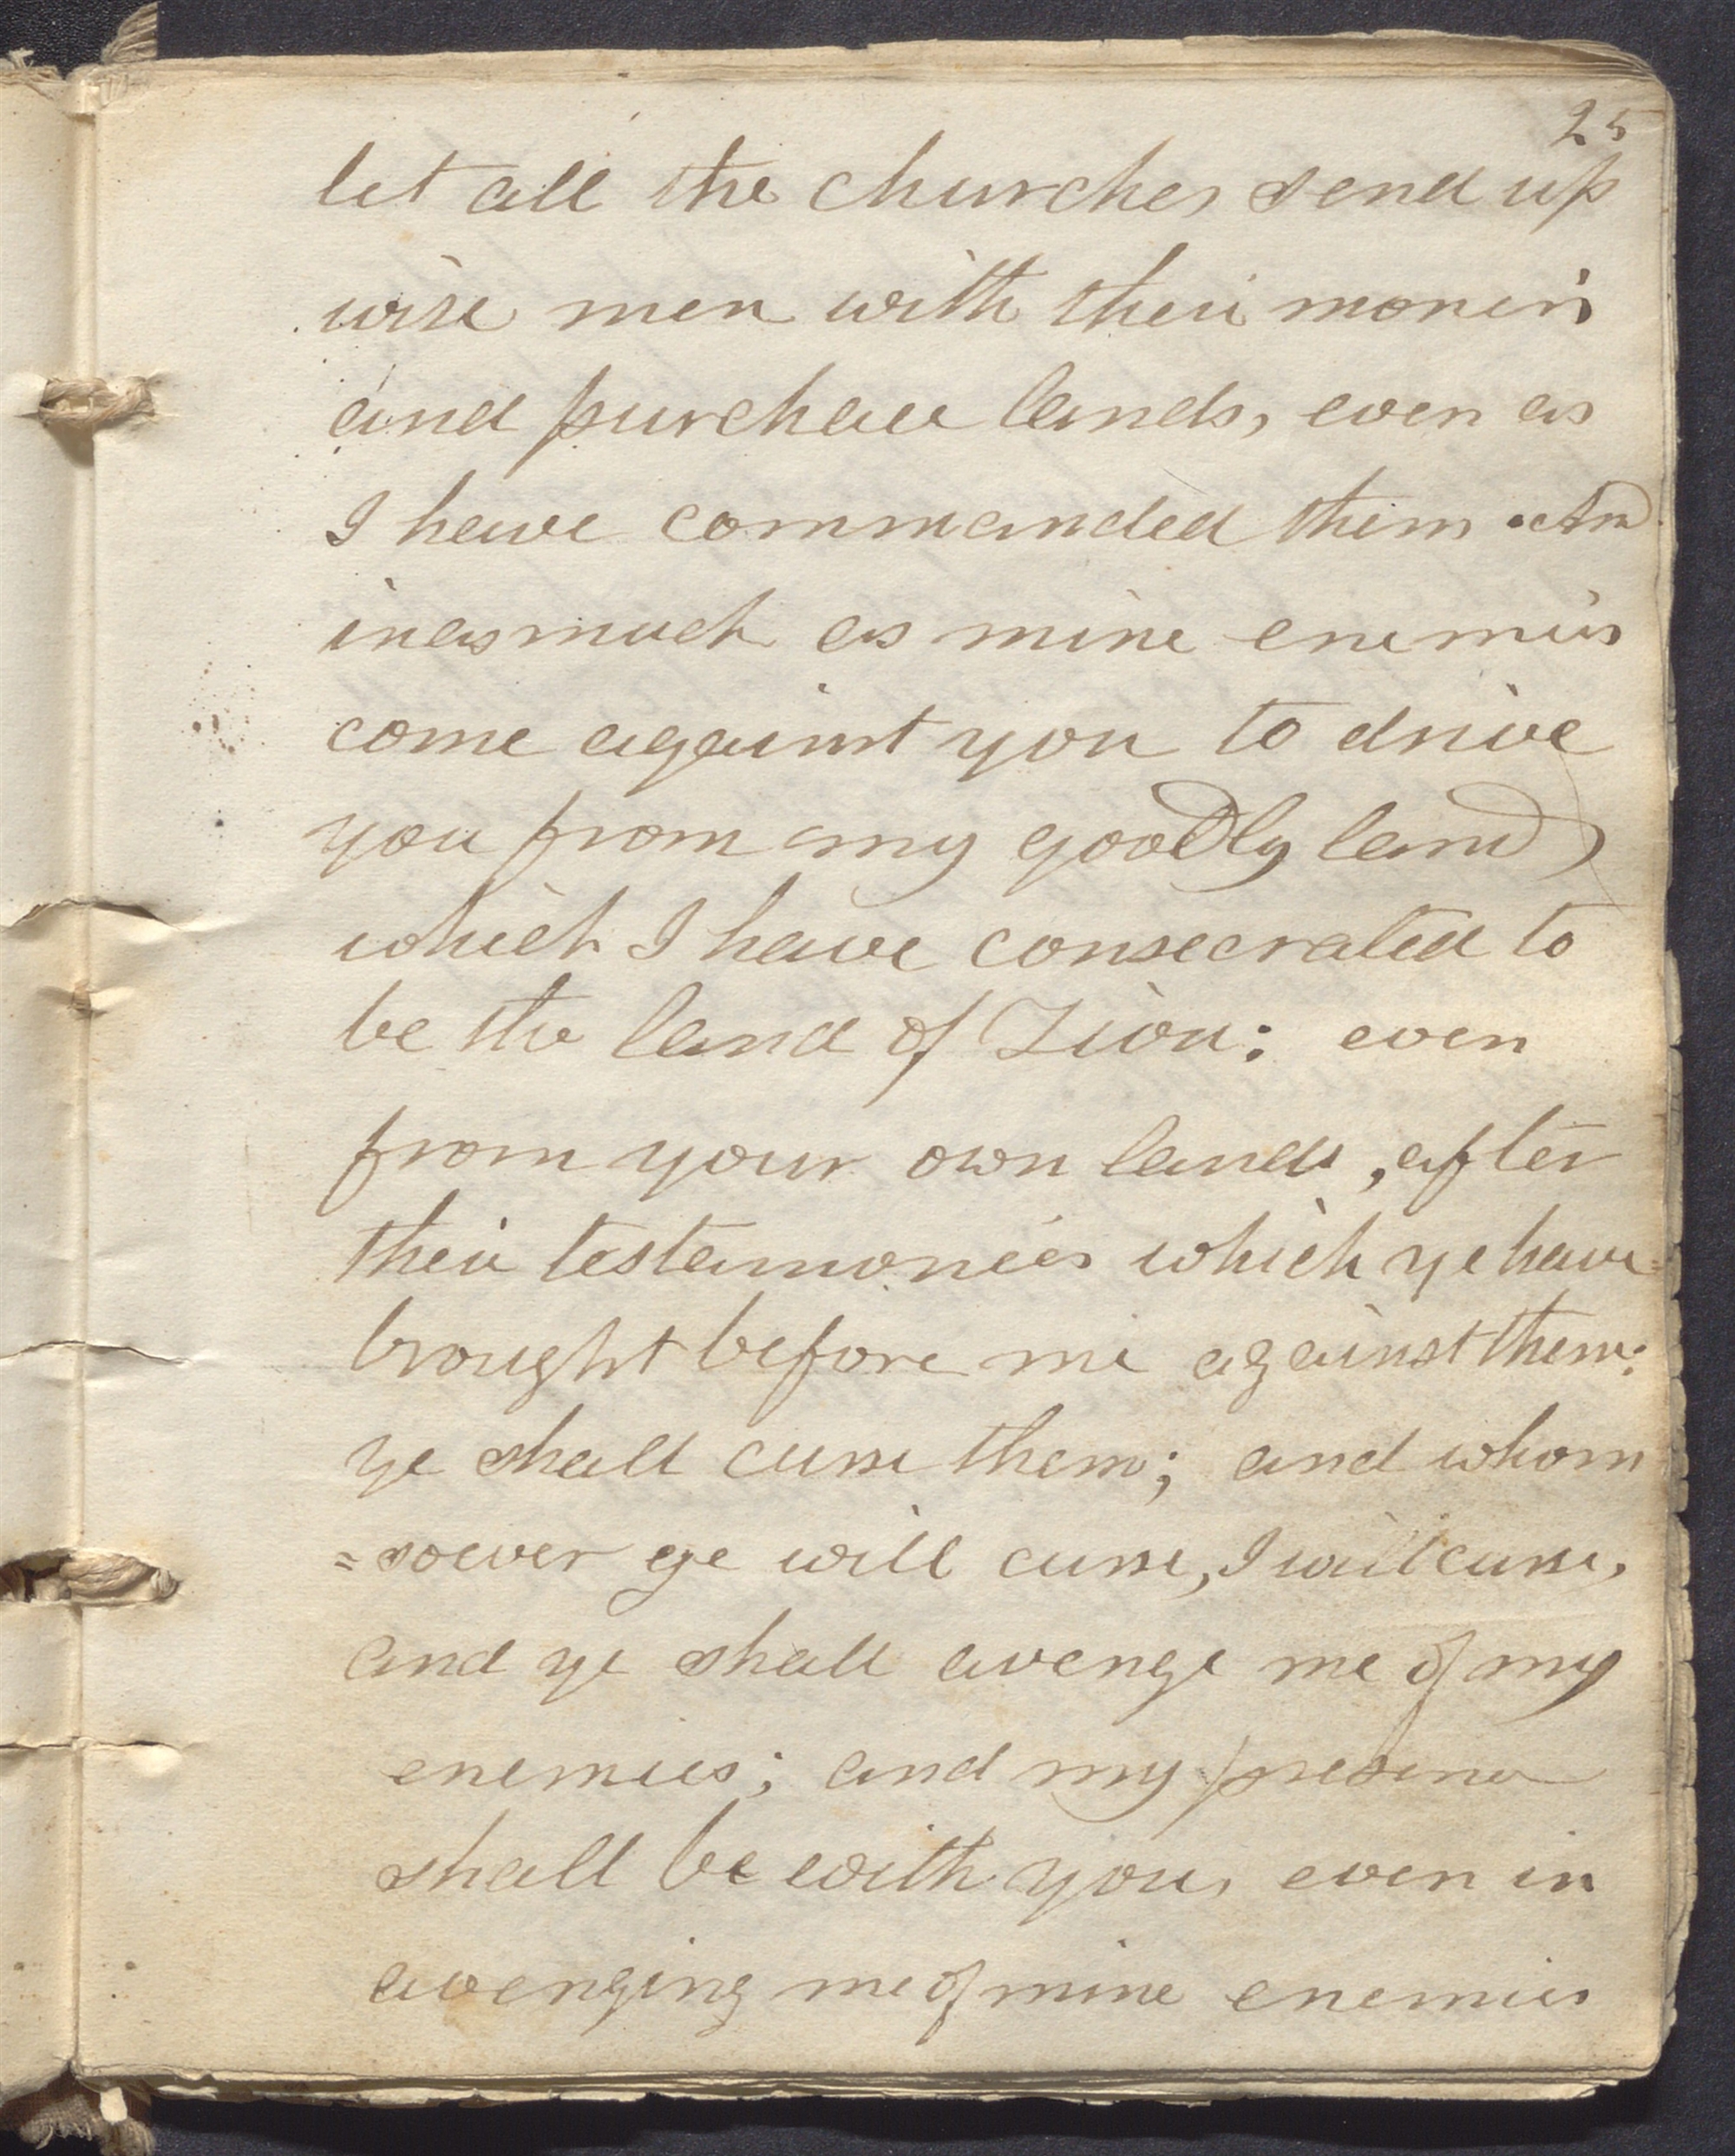 25
let all the churches send up
wise men with their monies
and purchase lands, even as
I have commanded them. And
inasmuch as mine enemies
come against you to drive
you from my goodly land,
which I have consecrated to
be the land of Zion: even
from your own lands, after
their testamonies which ye have
brought before me against them:
ye shall curse them; and whom
=soever ye will curse, I will curse,
and ye shall avenge me of my
enemies; and my presence
shall be with you, even in
avenging me of mine enemies